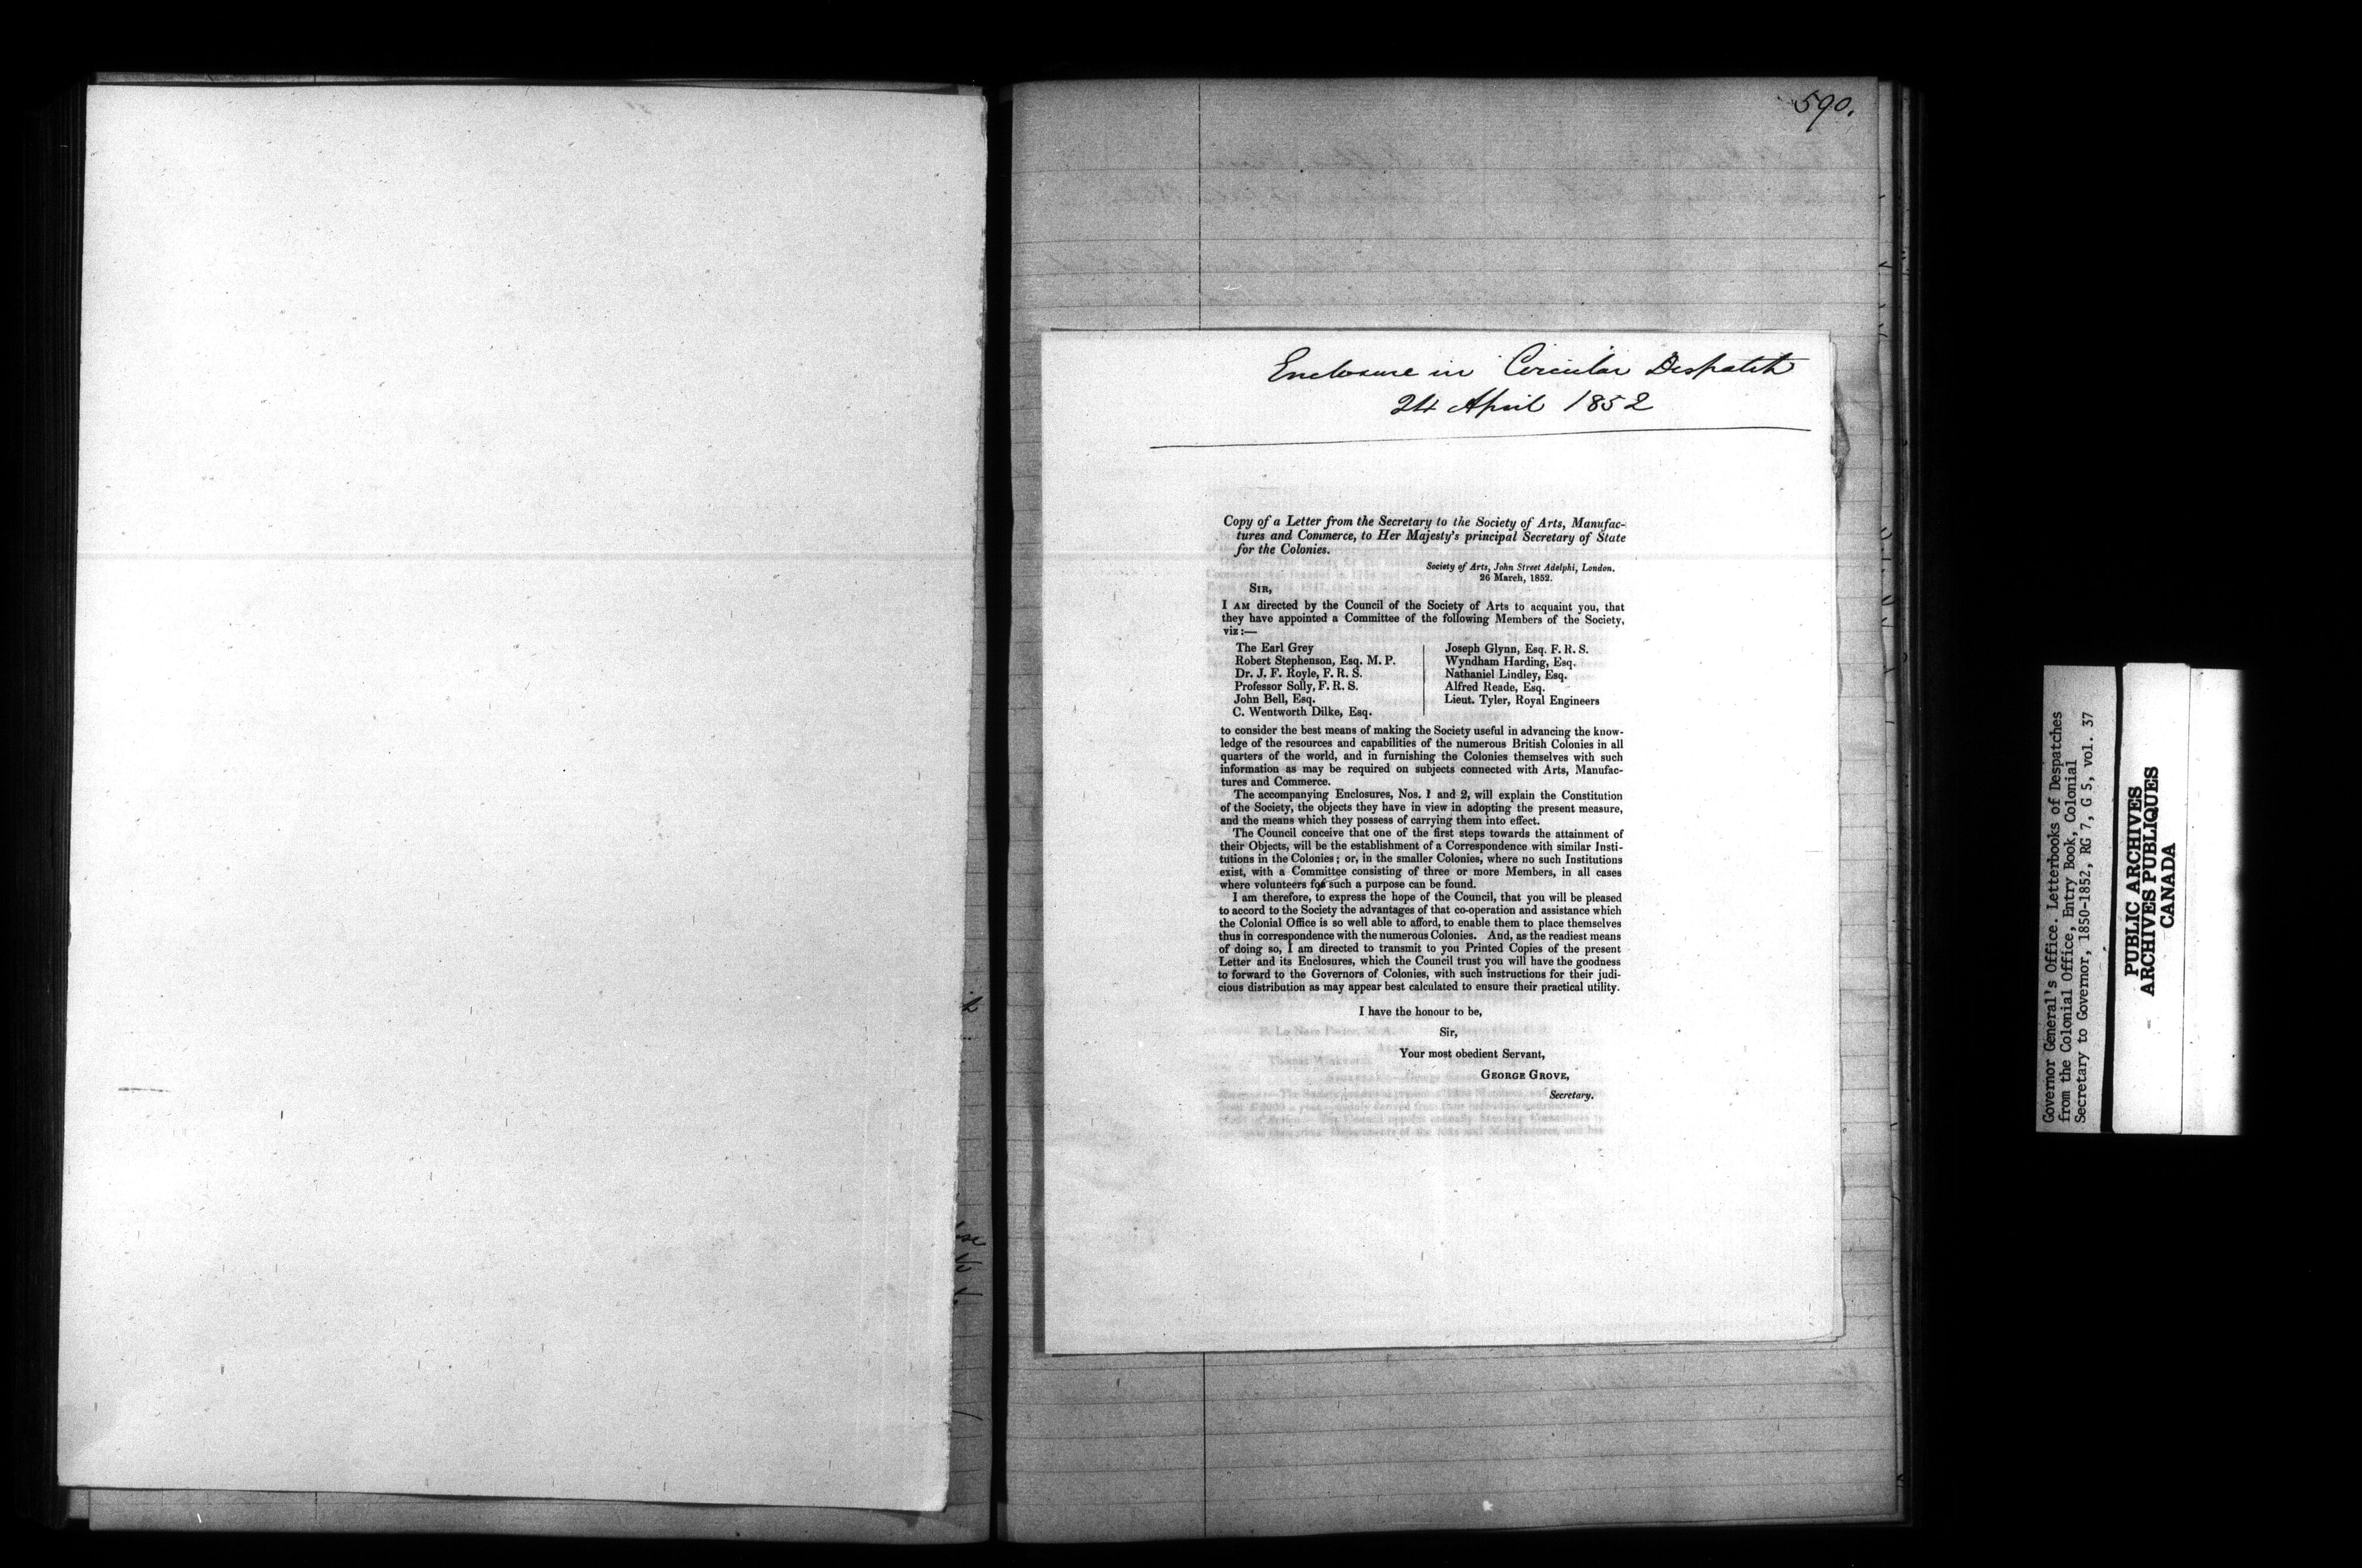 590.
Enclosure in Circular Despatch
24 April 1852
Copy of a Letter from the Secretary to the Society of Arts, Manufac-
tures and Commerce, to Her Majesty's principal Secretary of State
for the Colonies.
Society of Arts, John Street Adelphi, London.
26 March, 1852.
SIR,
I AM directed by the Council of the Society of Arts to acquaint you, that
they have appointed a Committee of the following Members of the Society,
viz:—
The Earl Grey
Robert Stephenson, Esq. M. P.
Dr. J. F. Royle, F. R. S.
Professor Solly, F. R. S.
John Bell, Esq.
C. Wentworth Dilke, Esq.
Joseph Glynn, Esq. F. R. S.
Wyndham Harding, Esq.
Nathaniel Lindley, Esq.
Alfred Reade, Esq.
Lieut. Tyler, Royal Engineers
to consider the best means of making the Society useful in advancing the know-
ledge of the resources and capabilities of the numerous British Colonies in all
quarters of the world, and in furnishing the Colonies themselves with such
information as may be required on subjects connected with Arts, Manufac-
tures and Commerce.
The accompanying Enclosures, Nos. 1 and 2, will explain the Constitution
of the Society, the objects they have in view in adopting the present measure,
and the means which they possess of carrying them into effect.
The Council conceive that one of the first steps towards the attainment of
their Objects, will be the establishment of a Correspondence with similar Insti-
tutions in the Colonies; or, in the smaller Colonies, where no such Institutions
exist, with a Committee consisting of three or more Members, in all cases
where volunteers for such a purpose can be found.
I am therefore, to express the hope of the Council, that you will be pleased
to accord to the Society the advantages of that co-operation and assistance which
the Colonial Office is so well able to afford, to enable them to place themselves
thus in correspondence with the numerous Colonies. And, as the readiest means
of doing so, I am directed to transmit to you Printed Copies of the present
Letter and its Enclosures, which the Council trust you will have the goodness
to forward to the Governors of Colonies, with such instructions for their judi-
cious distribution as may appear best calculated to ensure their practical utility.
I have the honour to be,
Sir,
Your most obedient Servant,
GEORGE GROVE,
Secretary.
Governor General's Office. Letterbooks of Despatches
from the Colonial Office, Entry Book, Colonial
Secretary to Governor, 1850-1852, RG 7, G 5, vol. 37
PUBLIC ARCHIVES
ARCHIVES PUBLIQUES
CANADA